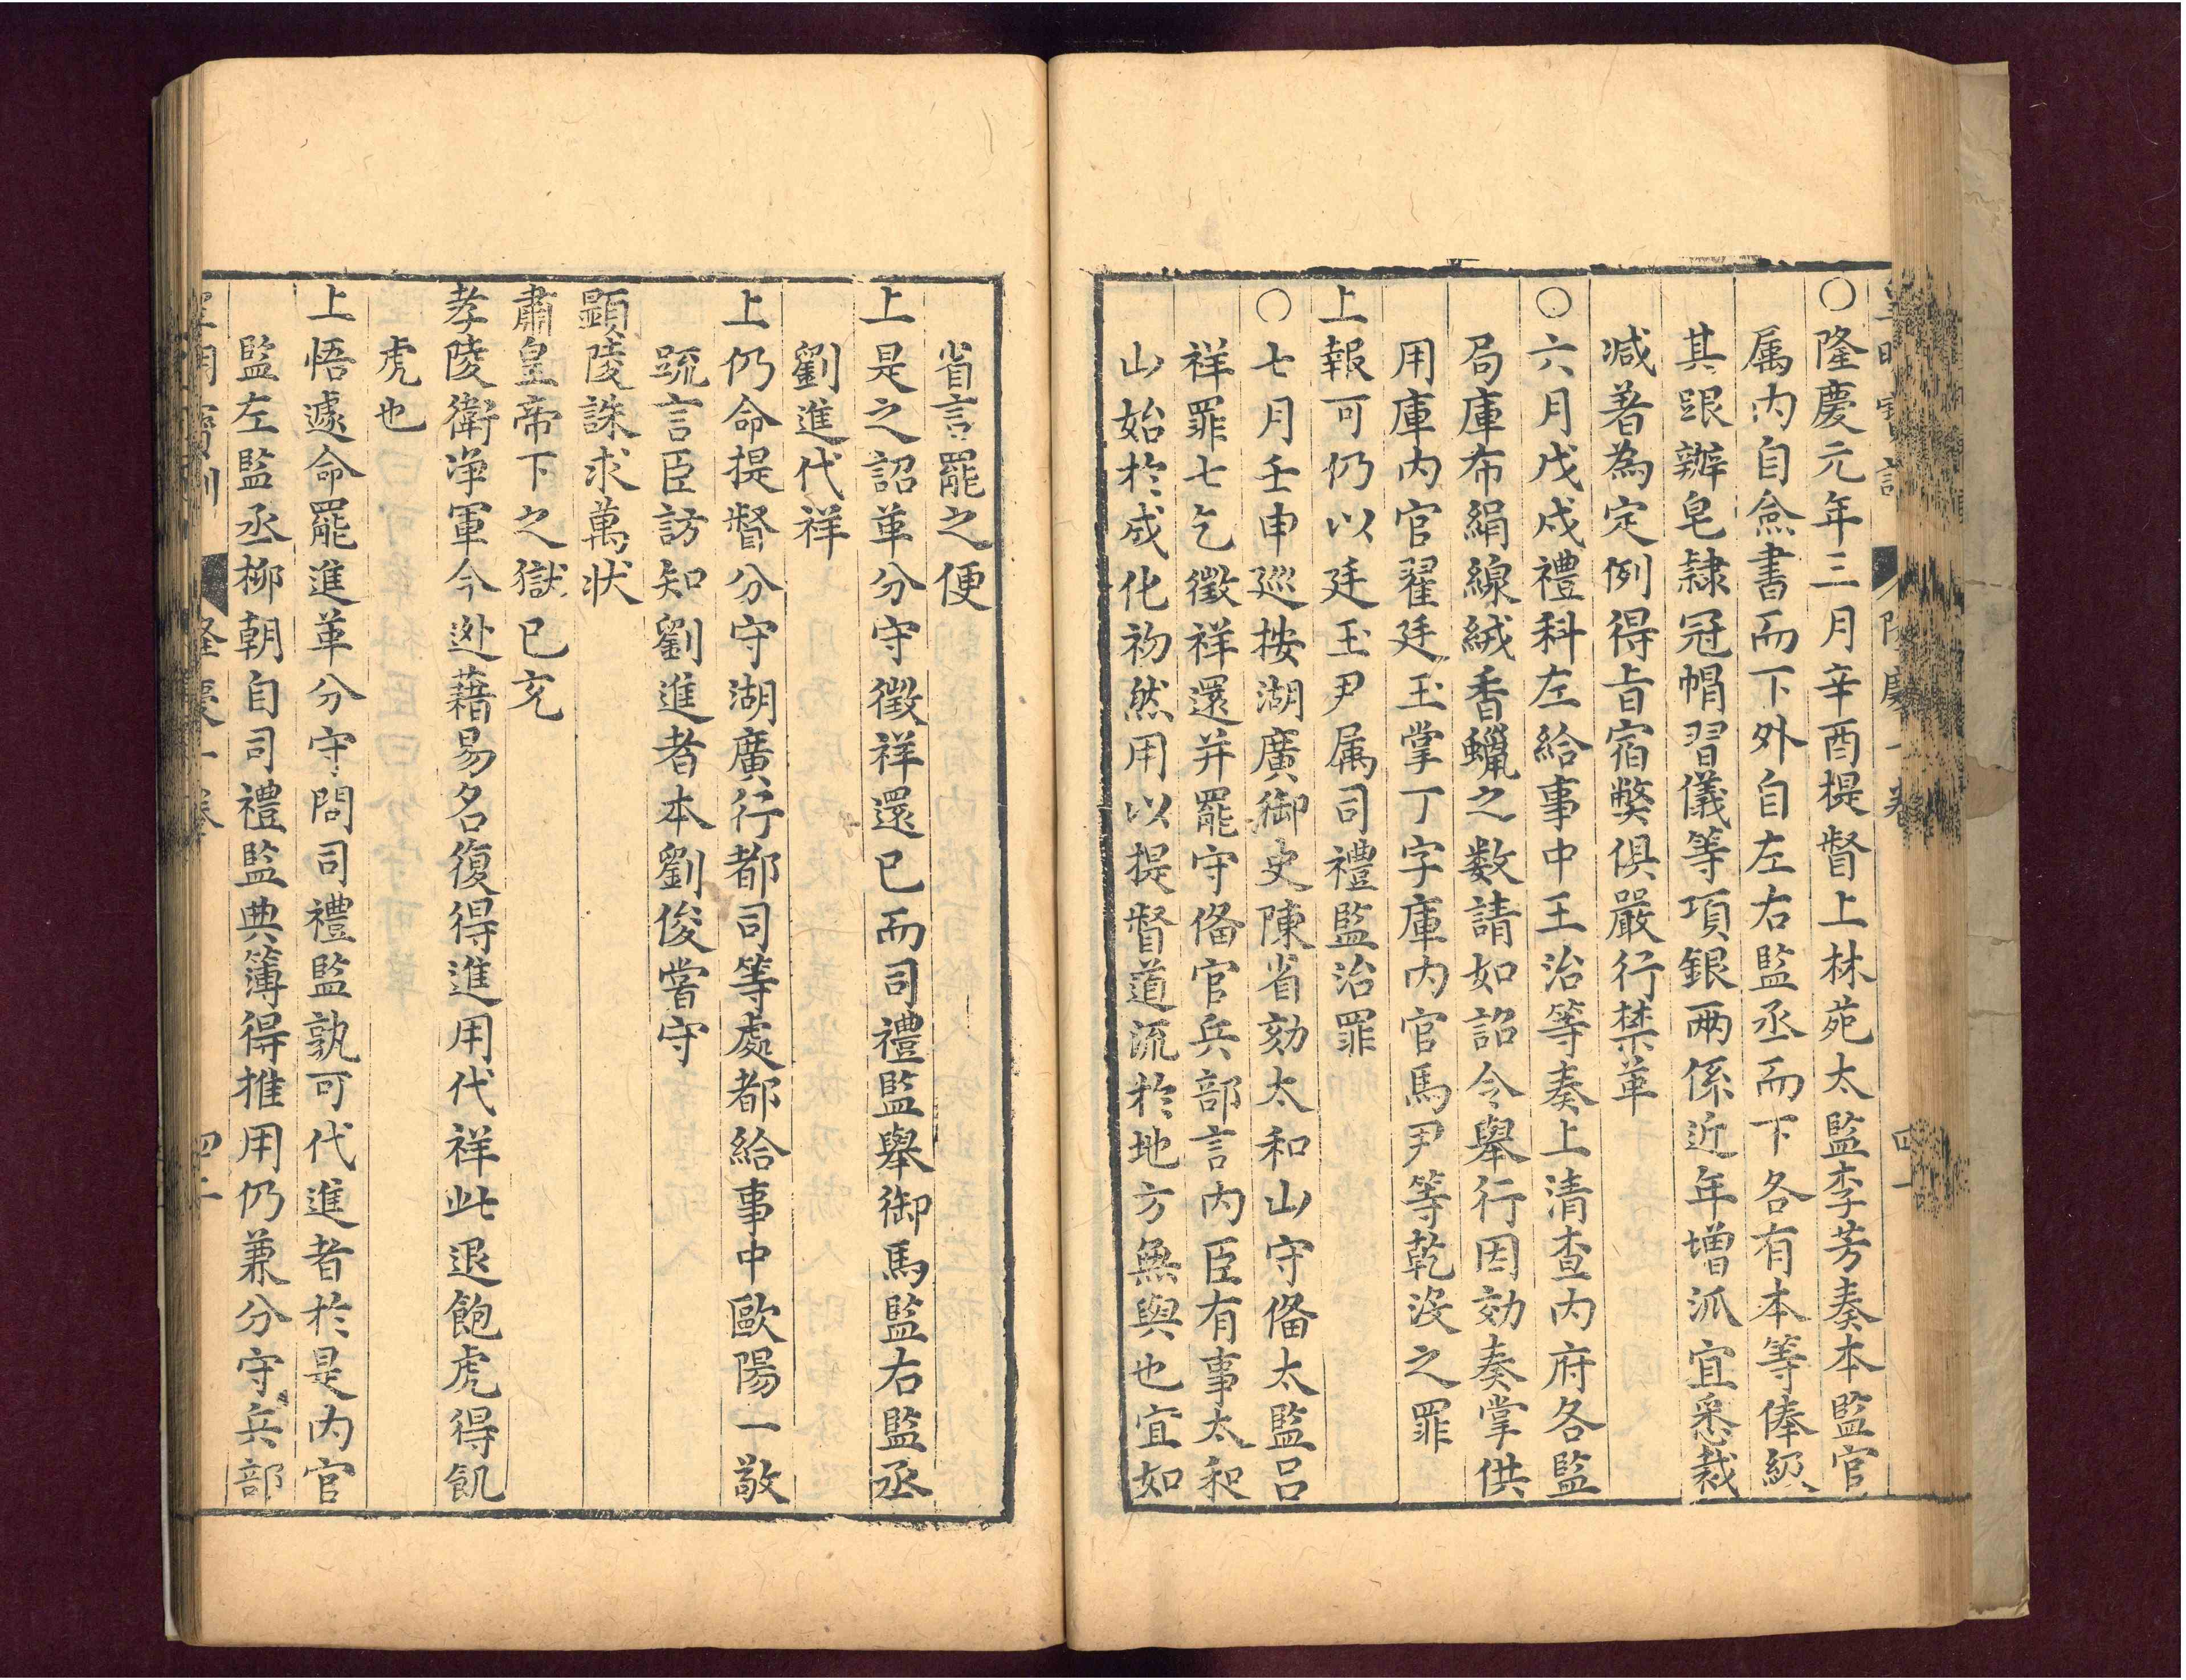 ○隆慶元年三月辛酉提督上林苑太監李芳奏本監官
属内自僉書而下外自左右監丞而下各有本等俸級
其跟辦皂隷冠帽習儀等項銀兩係近年增派宜悉裁
减著為定例得㫖宿弊俱嚴行禁革
○六月戊戌禮科左給事中王治等奏上清查内府各監
局庫布絹線絨香蠟之数請如詔令舉行因劾奏掌供
用庫内官翟廷玉掌丁字庫内官馬尹等乾没之罪
上報可仍以廷玉尹属司禮監治罪
○七月壬申廵按湖廣御史陳省劾太和山守俻太監吕
祥罪七乞徵祥還并罷守俻官兵部言内臣有事太和
山始於成化初然用以提督道流於地方無與也宜如
省言罷之便
上是之詔革分守徵祥還已而司禮監舉御馬監右監丞
劉進代祥
上仍命提督分守湖廣行都司等處都給事中歐陽一敬
䟽言臣訪知劉進者本劉俊嘗守
顯陵誅求萬狀
肅皇帝下之獄已充
孝陵衛淨軍今迯藉易名復得進用代祥此退飽虎得飢
虎也
上悟遽命罷進革分守問司禮監孰可代進者於是内官
監左監丞柳朝自司禮監典簿得推用仍兼分守兵部